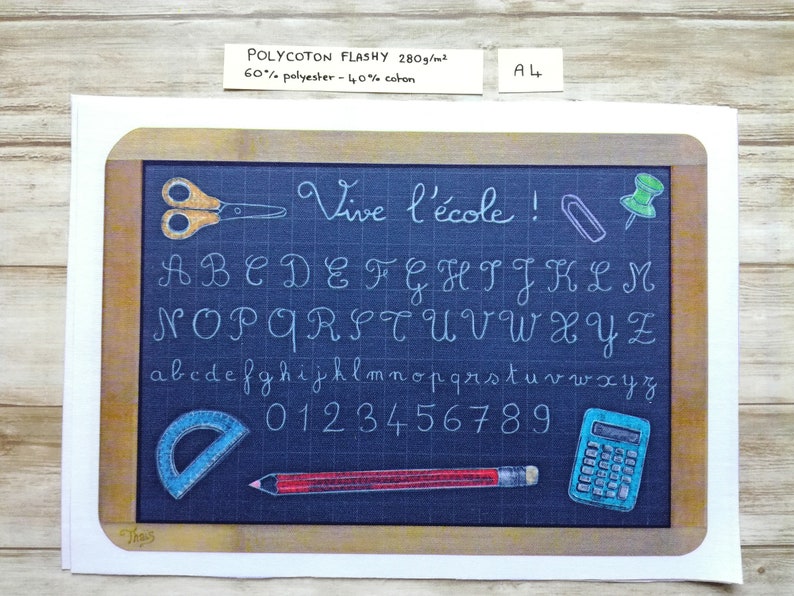 POLYCOTON FLASHY 280g/m²
60% polyester - 40% coton
A4
Vive l'école !
A B C D E F G H I J K L M
N O P Q R S T U V W X Y Z
a b c d e f g h i j k l m n o p q r s t u v w x y z
0 1 2 3 4 5 6 7 8 9
Thaïs